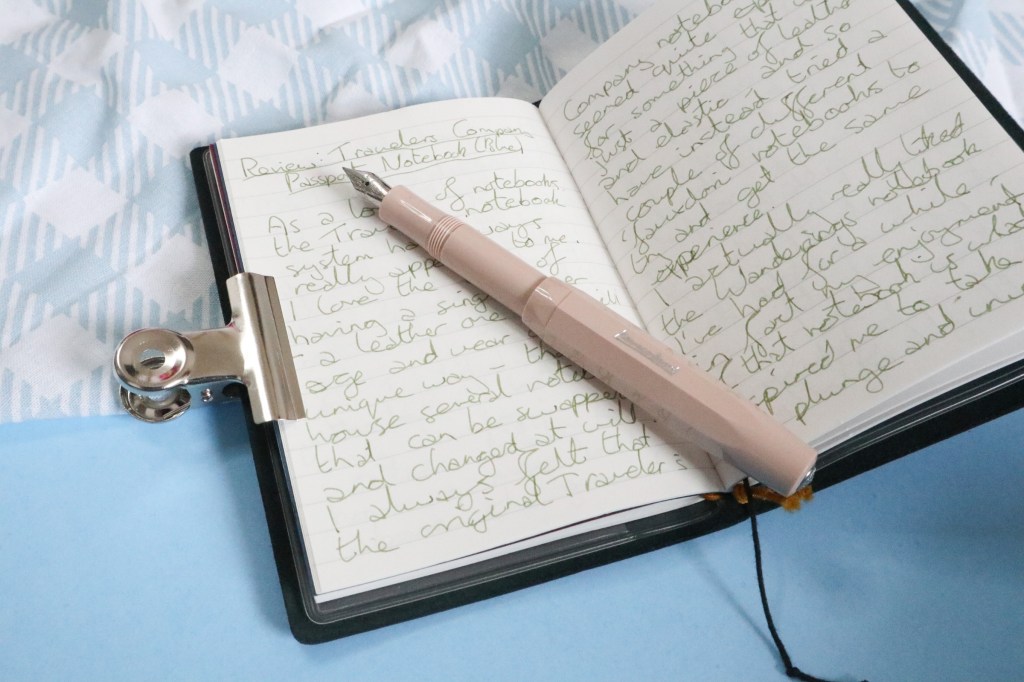 Review: Travelers Company
Passport Notebook (Blue)
As a lo of notebooks
the Trav notebook
system ha ways
really app to me.
I love the of
having a sing
a leather ove will
age and wear in
unique way - th
house several note
that can be swapped
and changed at will.
I always felt that
the original Traveler's
Company noteboo
seemed quite
for something that
just a piece of leather
and elastic and so
have instead tried a
couple of different
fauxdori notebooks
to try and get the same
experience.
I actually really liked
the Wanderings notebook
I've had for a while -
fact my enjoyment
that notebook is what
spired me to take
plunge and inve